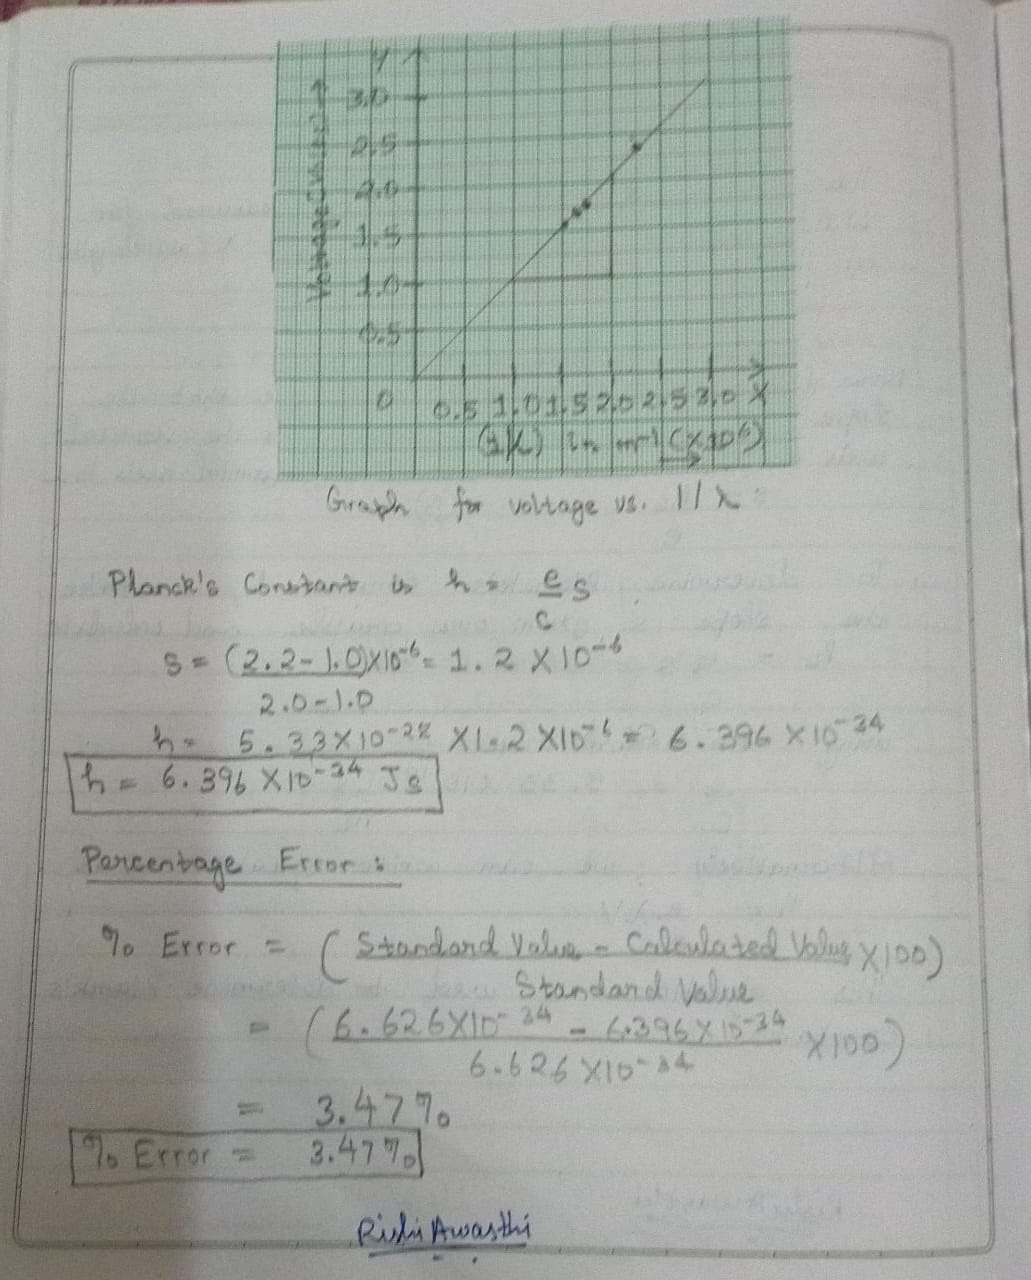 Y
Voltage (in V) →
3.0
2.5
2.0
1.5
1.0
0.5
0 0.5 1.0 1.5 2.0 2.5 3.0 X
(1/λ) in m-1 (×10⁶)
Graph for voltage vs. 1/λ
Planck's Constant is h = e/c S
S = (2.2 - 1.0)×10⁻⁶ = 1.2 × 10⁻⁶
2.0 - 1.0
h = 5.33×10⁻²⁸ × 1.2 × 10⁻⁶ = 6.396 × 10⁻³⁴
h = 6.396 × 10⁻³⁴ Js
Percentage Error :
% Error = (Standard Value - Calculated Value × 100)
Standard Value
= (6.626×10⁻³⁴ - 6.396×10⁻³⁴ × 100)
6.626 × 10⁻³⁴
= 3.47%
% Error = 3.47%
Rishi Awasthi